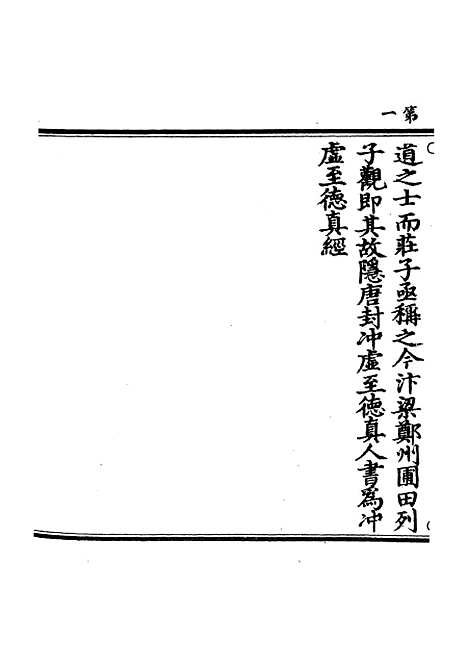 第一
道之士而莊子亟稱之今汴梁鄭州圃田列
子觀即其故隱唐封冲虛至德真人書為冲
虛至德真經